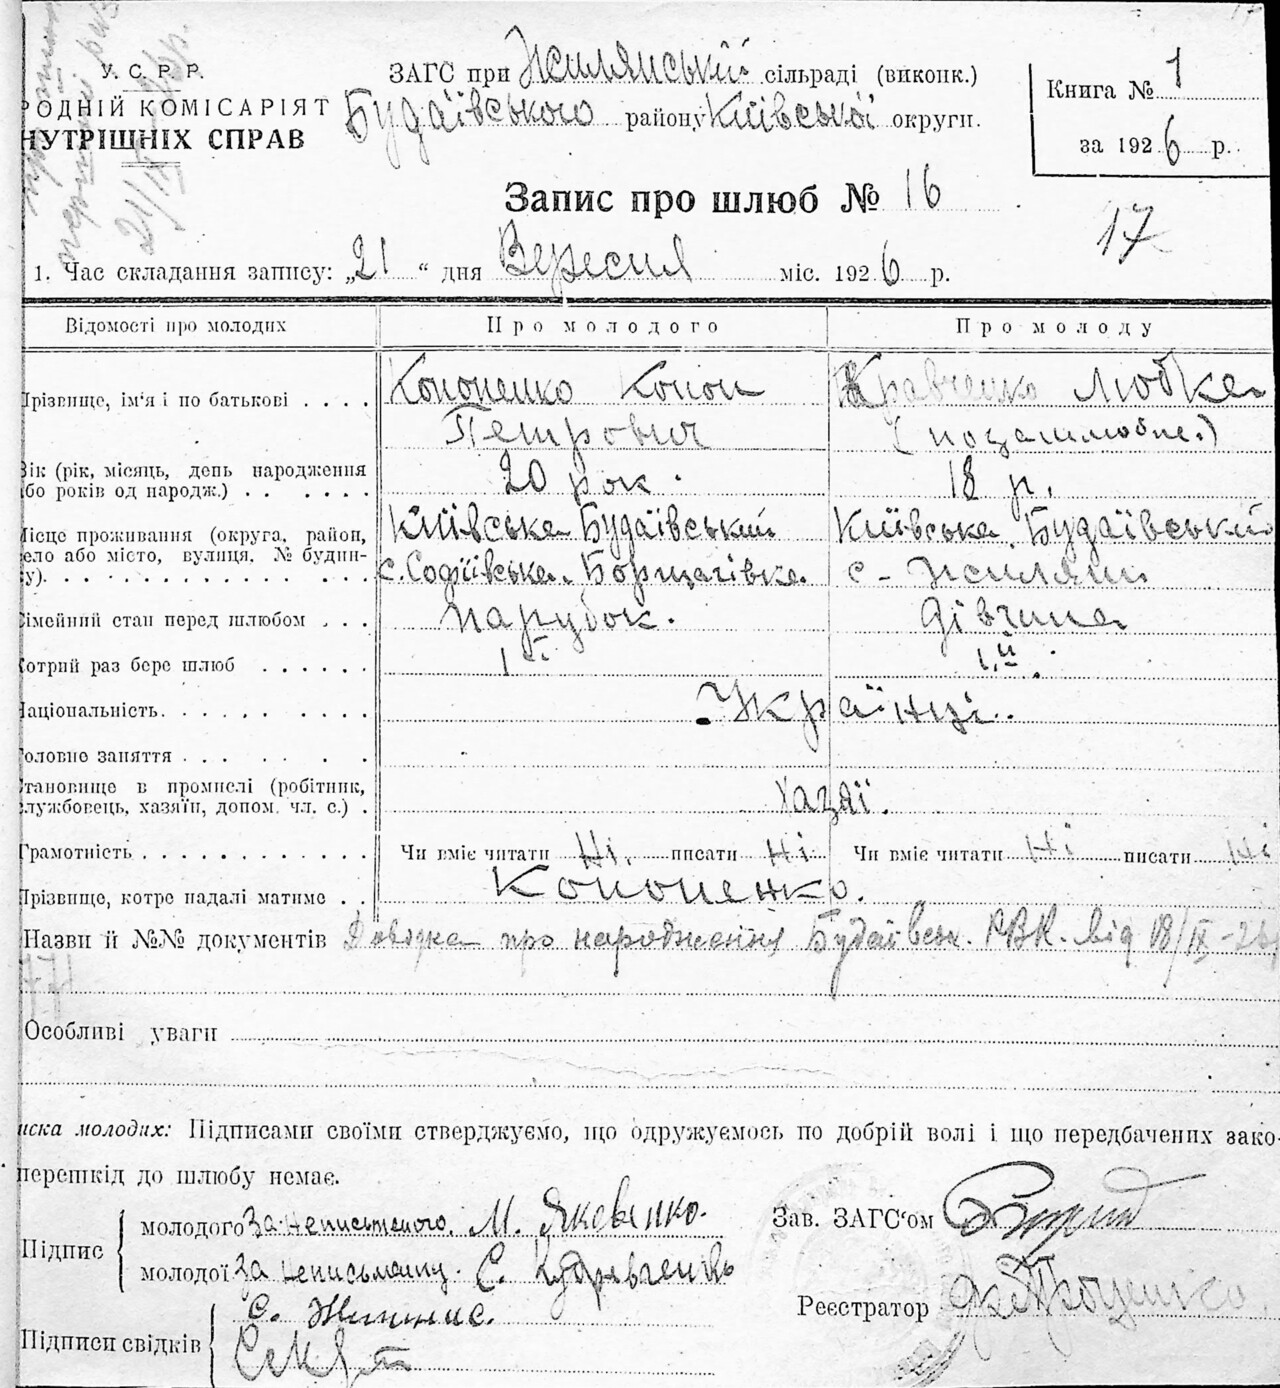 У.С.Р.Р.
РОДНІЙ КОМІСАРІЯТ
НУТРІШНІХ СПРАВ
21/IX
ЗАГС при Жилянській сільраді (виконк.)
Будаївського району Київської округи.
Книга № 1
за 1926 р.
Запис про шлюб № 16
17
1. Час складання запису: „21 “ дня Вересня міс. 1926 р.
Відомості про молодих Про молодого Про молоду
Прізвище, ім'я і по батькові . . . . Кононенко Конон Кравченко Любка
Петрович (позашлюбне.)
Вік (рік, місяць, день народження
або років од народж.) . . . . . . 20 рок. 18 р.
Місце проживання (округа, район, Київська Будаївський Київська Будаївський
село або місто, вулиця, № будин-
ку). . . . . . . . . . . . . . с. Софіївська Борщагівка с - Жиляни
Сімейний стан перед шлюбом . . . парубок. дівчина
Котрий раз бере шлюб . . . . . . 1-й 1-й
Національність. . . . . . . . . . Українці.
Головне заняття . . . . . . . .
Становище в промислі (робітник,
службовець, хазяїн, допом. чл. с.) . Хазяї.
Грамотність . . . . . . . . . . . . Чи вміє читати Ні. писати Ні Чи вміє читати Ні писати Ні
Прізвище, котре надалі матиме . . Кононенко.
Назви й №№ документів Довідка про народження Будаївськ. РВК. від 18/IX-26р
Особливі уваги
иска молодих: Підписами своїми стверджуємо, що одружуємось по добрій волі і що передбачених зако-
перешкід до шлюбу немає.
Підпис
молодого За неписьменого. М. Яковенко.
молодої За неписьменну. С. Кудравченко
Зав. ЗАГС'ом
Реєстратор Троценко
Підписи свідків
С.